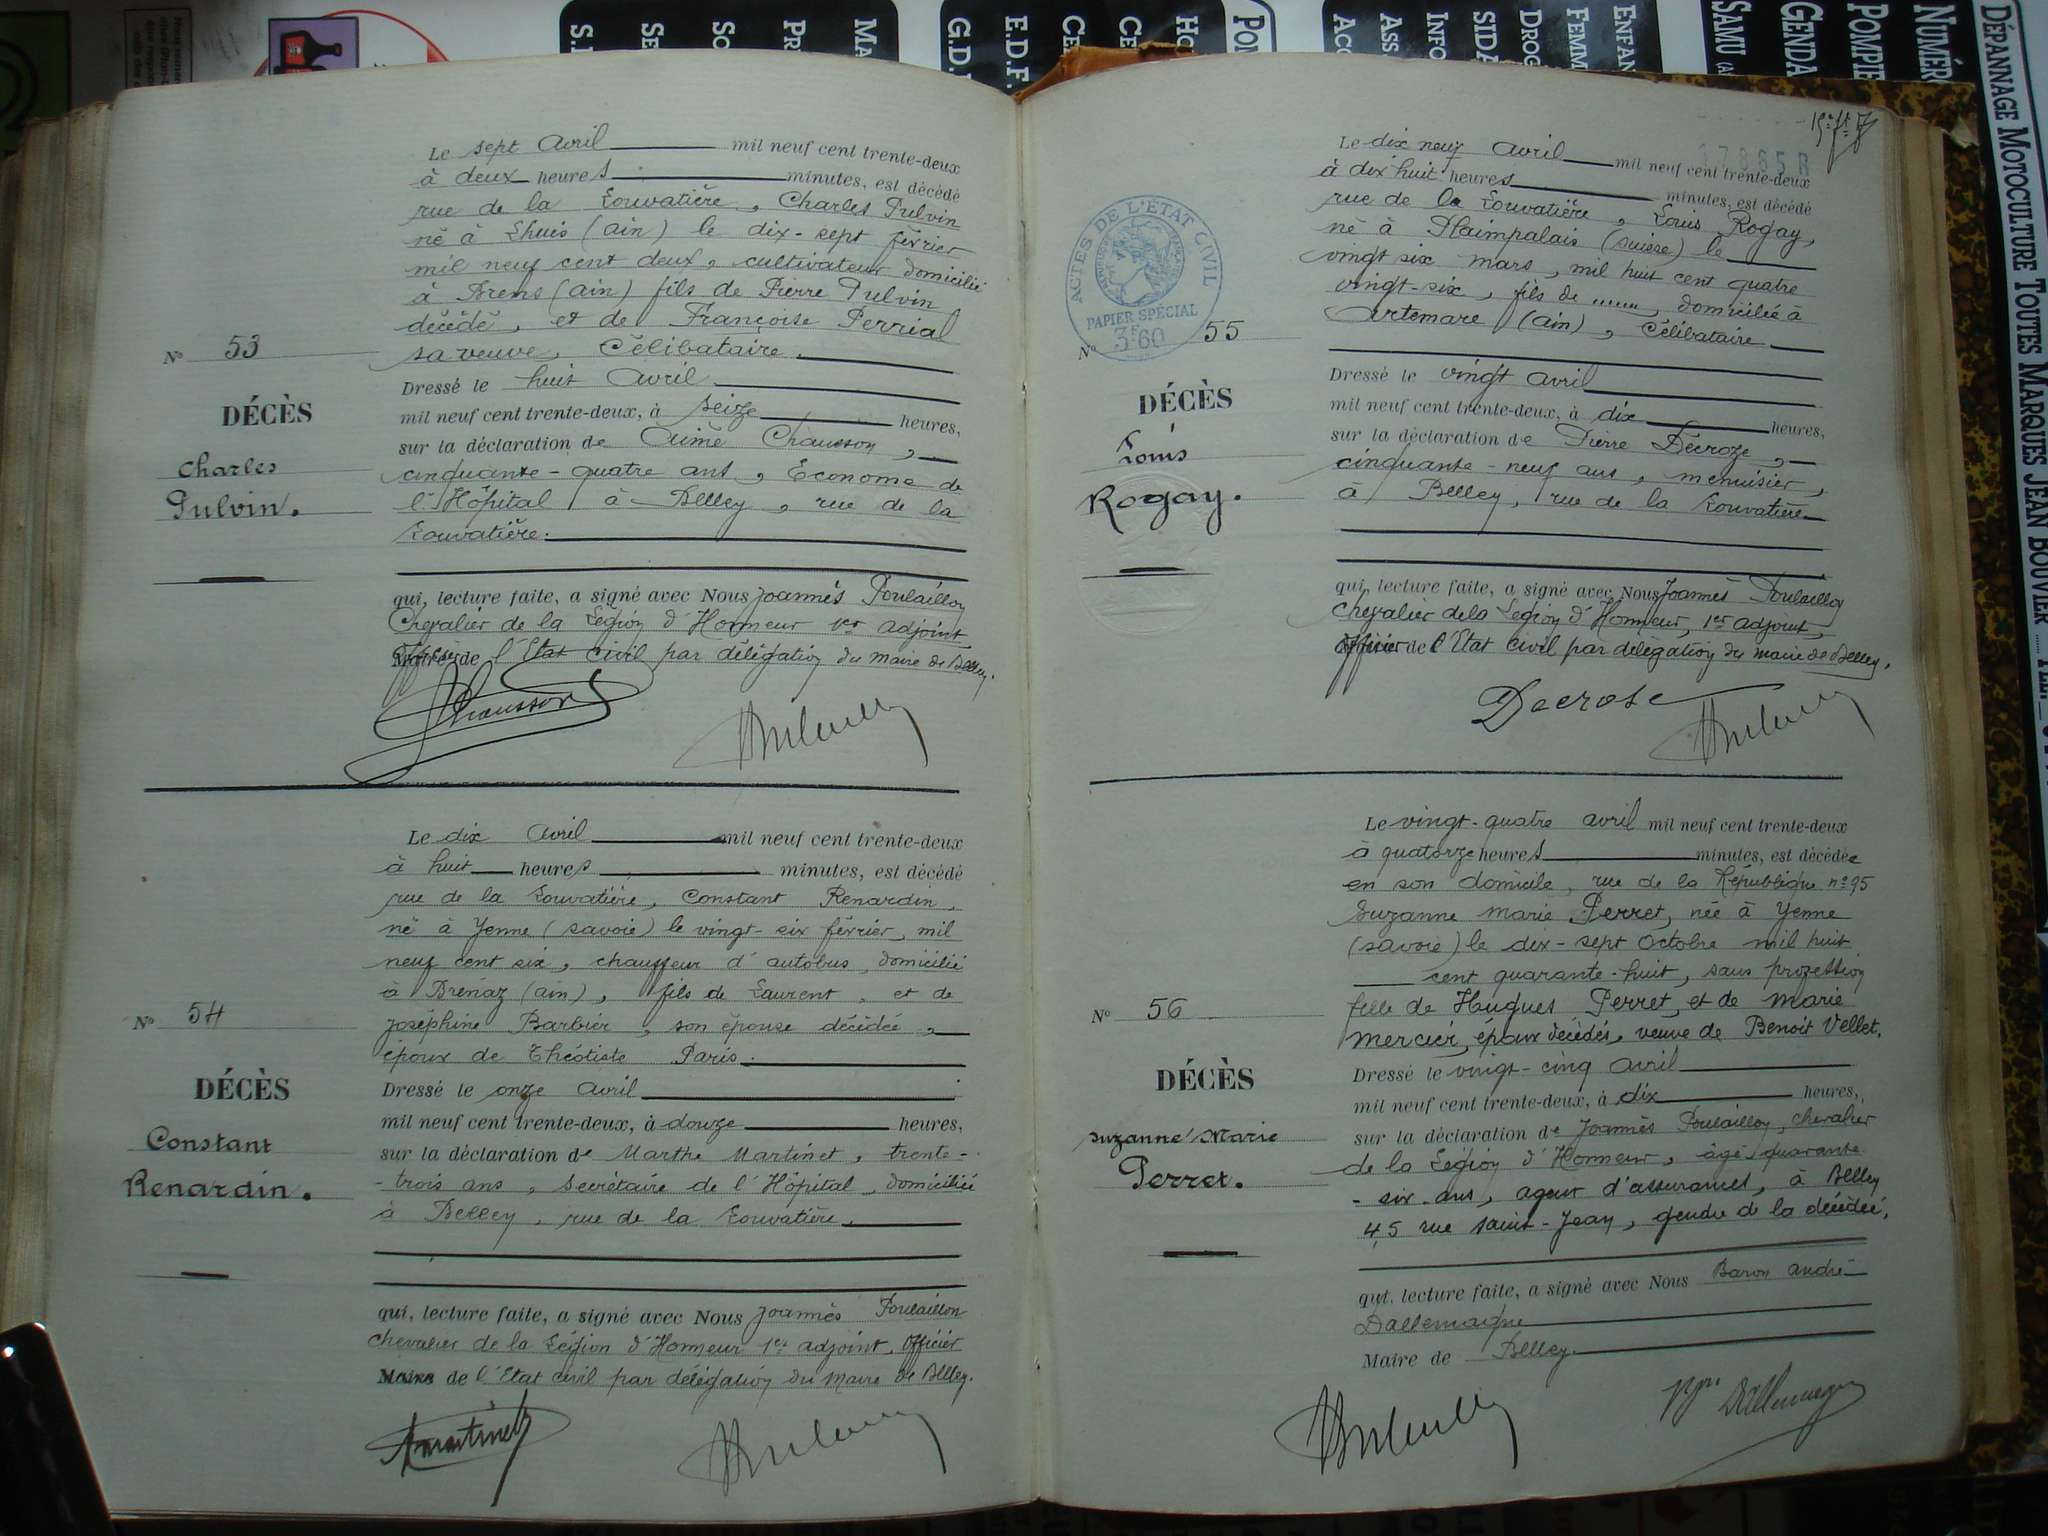 DÉPANNAGE MOTOCULTURE TOUTES MARQUES JEAN BOUVIER
NUMÉR
POMPIE
GENDA
SAMU
ENFAN
FEMM
DROG
SIDA
INFO
ASS
ACC
PON
HO
CE
CE
E.D.F.
G.D.
MA
PR
SO
SE
S.
Le sept Avril mil neuf cent trente-deux
à deux heures minutes, est décédé
rue de la Louvatière, Charles Pulvin
né à Lhuis (ain) le dix-sept février
mil neuf cent deux, cultivateur domicilié
à Brens (ain) fils de Pierre Pulvin
décédé, et de Françoise Perrial
sa veuve, Célibataire.
N° 53
DÉCÈS
Charles
Pulvin.
Dressé le huit Avril
mil neuf cent trente-deux, à seize heures,
sur la déclaration de Aimé Chausson,
cinquante-quatre ans, Économe de
l'Hôpital à Belley, rue de la
Louvatière.
qui, lecture faite, a signé avec Nous Joannès Poulaillon
Chevalier de la Légion d'Honneur 1er adjoint
Officier de l'Etat civil par délégation du maire de Belley.
Chausson
Le dix Avril mil neuf cent trente-deux
à huit heures minutes, est décédé
rue de la Louvatière, Constant Renardin,
né à Yenne (savoie) le vingt-six février, mil
neuf cent six, chauffeur d'autobus, domicilié
à Brénaz (ain), fils de Laurent, et de
Joséphine Barbier, son épouse décédée,
époux de Théotiste Paris.
N° 54
DÉCÈS
Constant
Renardin.
Dressé le onze Avril
mil neuf cent trente-deux, à douze heures,
sur la déclaration de Marthe Martinet, trente-
-trois ans, Secrétaire de l'Hôpital, domicilié
à Belley, rue de la Louvatière,
qui, lecture faite, a signé avec Nous Joannès Poulaillon
chevalier de la Légion d'Honneur 1er adjoint, Officier
Maire de l'Etat civil par délégation du Maire de Belley.
Martinet
17865 R
ACTES DE L'ÉTAT CIVIL
PAPIER SPÉCIAL
3F60
Le dix neuf avril mil neuf cent trente-deux
à dix huit heures minutes, est décédé
rue de la Louvatière, Louis Rogay,
né à Plaimpalais (suisse) le
vingt six mars, mil huit cent quatre
vingt-six, fils de ......, domicilié à
Artemare (ain), Célibataire.
N° 55
DÉCÈS
Louis
Rogay.
Dressé le vingt avril
mil neuf cent trente-deux, à dix heures,
sur la déclaration de Pierre Décroze,
cinquante-neuf ans, menuisier,
à Belley, rue de la Louvatière
qui, lecture faite, a signé avec Nous Joannès Poulaillon
Chevalier de la Légion d'Honneur, 1er adjoint,
Officier de l'Etat civil par délégation du maire de Belley.
Decrose
Le vingt-quatre avril mil neuf cent trente-deux
à quatorze heures minutes, est décédée
en son domicile, rue de la République n°95
Suzanne Marie Perret, née à Yenne
(savoie) le dix-sept Octobre mil huit
cent quarante-huit, sans profession
fille de Hugues Perret, et de Marie
Mercier, époux décédés, veuve de Benoit Vellet.
N° 56
DÉCÈS
Suzanne Marie
Perret.
Dressé le vingt-cinq avril
mil neuf cent trente-deux, à dix heures,
sur la déclaration de Joannès Poulaillon, chevalier
de la Légion d'Honneur, âgé quarante
-six ans, agent d'assurances, à Belley
45 rue Saint-Jean, gendre de la décédée,
qui, lecture faite, a signé avec Nous Baron André
Dallemagne
Maire de Belley
Bon Dallemagne